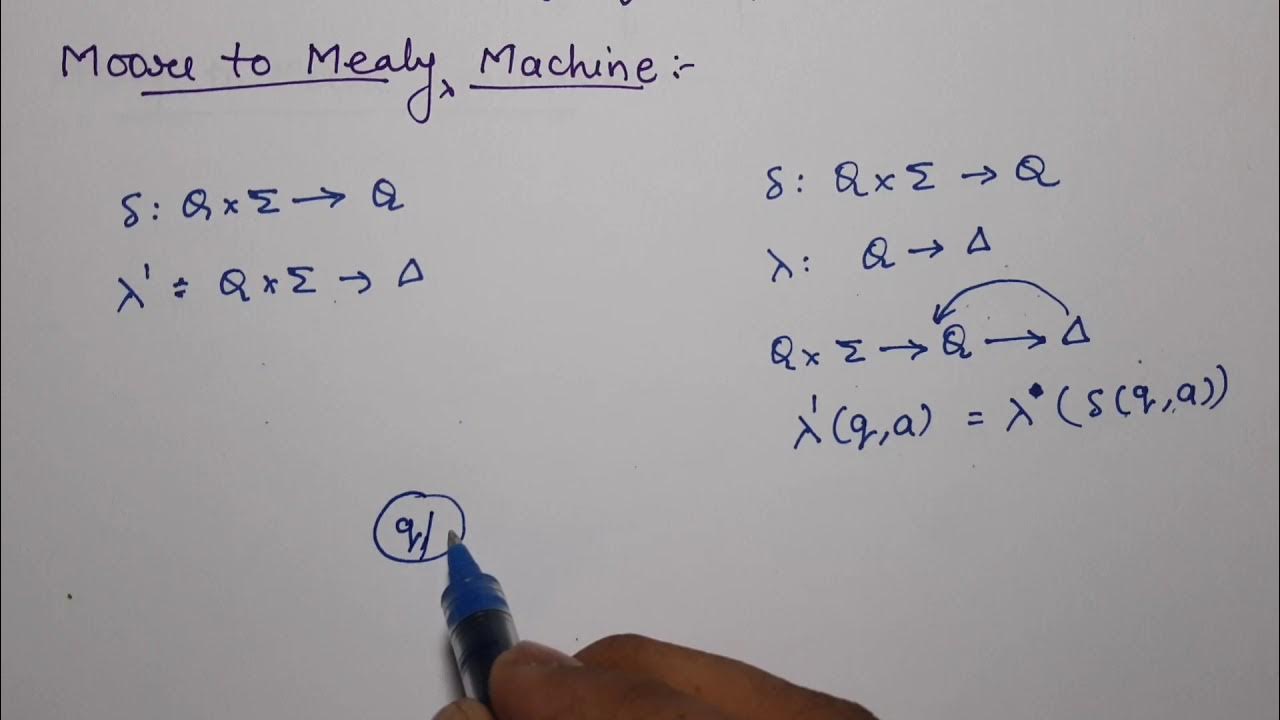 Moore to Mealy Machine :-
λ
δ: Q × Σ → Q
λ' : Q × Σ → Δ
δ: Q × Σ → Q
λ: Q → Δ
Q × Σ → Q → Δ
λ'(q,a) = λ(δ(q,a))
q/